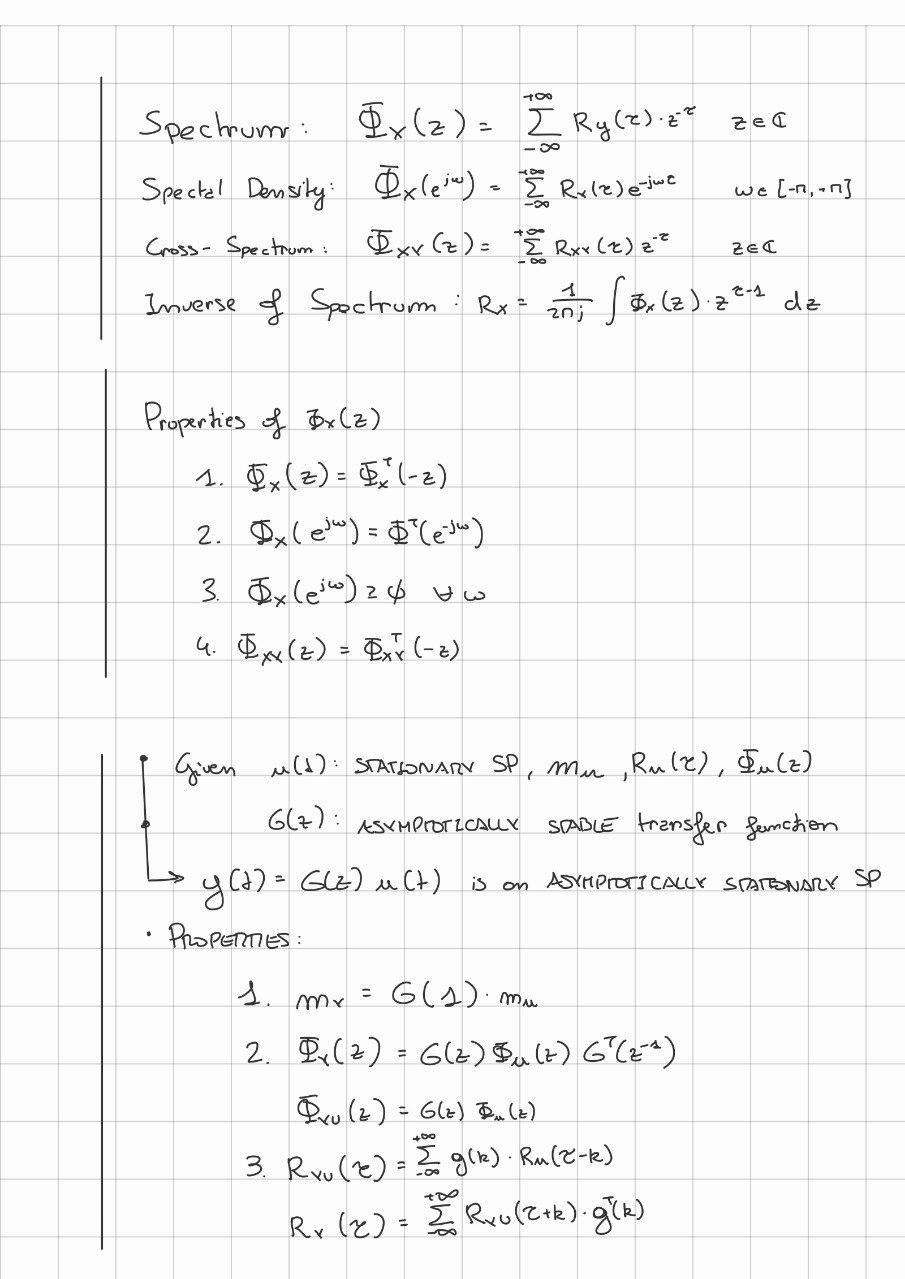 Spectrum: Φ_x(z) = Σ_{-∞}^{+∞} Ry(τ)·z^{-τ} z∈ℂ
Spectal Density: Φ_x(e^{jω}) = Σ_{-∞}^{+∞} R_x(τ)e^{-jωτ} ω∈[-π,+π]
Cross-Spectrum: Φ_{XY}(z) = Σ_{-∞}^{+∞} R_{XY}(τ) z^{-τ} z∈ℂ
Inverse of Spectrum: R_x = 1/(2πj) ∫ Φ_x(z)·z^{τ-1} dz
Properties of Φ_x(z)
1. Φ_x(z) = Φ_x^T(-z)
2. Φ_x(e^{jω}) = Φ^T(e^{-jω})
3. Φ_x(e^{jω}) ≥ ϕ ∀ω
4. Φ_{XY}(z) = Φ_{XY}^T(-z)
Given u(t): STATIONARY SP, m_u, R_u(τ), Φ_u(z)
G(z): ASYMPTOTICALLY STABLE transfer function
y(t) = G(z) u(t) is an ASYMPTOTICALLY STATIONARY SP
• PROPERTIES:
1. m_Y = G(1)·m_u
2. Φ_Y(z) = G(z) Φ_u(z) G^T(z^{-1})
Φ_{YU}(z) = G(z) Φ_u(z)
3. R_{YU}(τ) = Σ_{-∞}^{+∞} g(k)·R_u(τ-k)
R_Y(τ) = Σ_{-∞}^{+∞} R_{YU}(τ+k)·g^T(k)